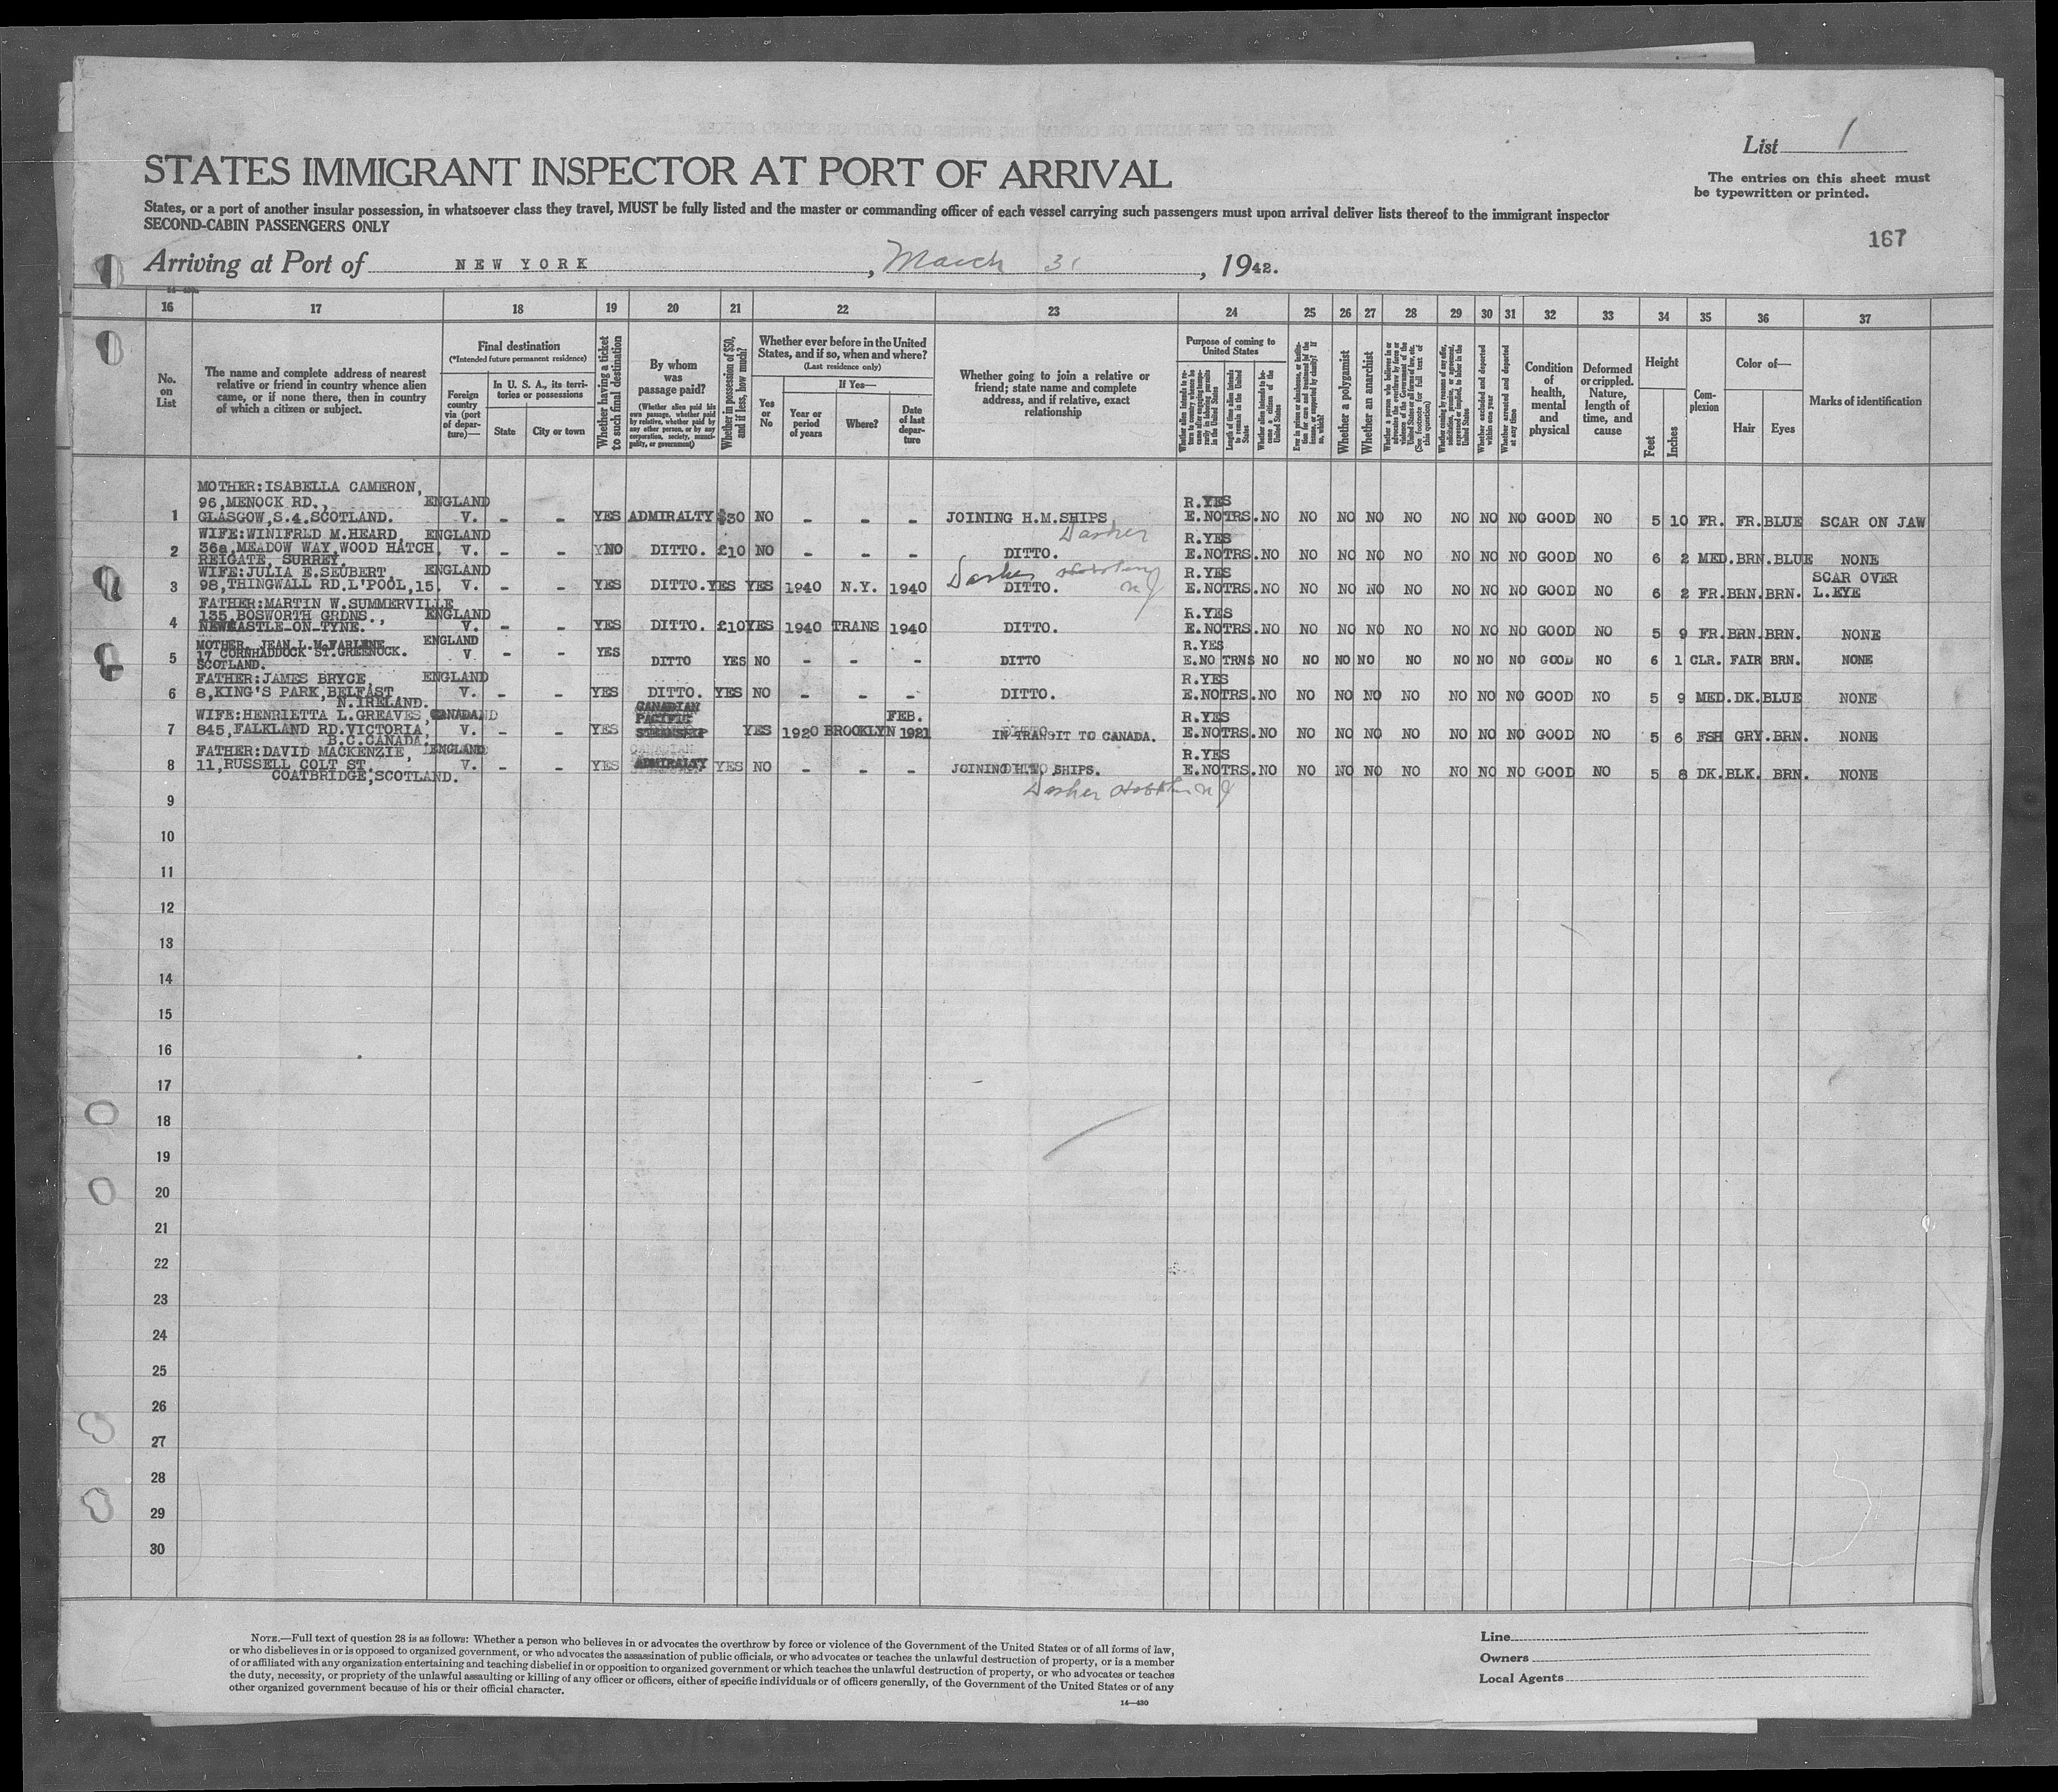 List 1
STATES IMMIGRANT INSPECTOR AT PORT OF ARRIVAL
The entries on this sheet must
be typewritten or printed.
States, or a port of another insular possession, in whatsoever class they travel, MUST be fully listed and the master or commanding officer of each vessel carrying such passengers must upon arrival deliver lists thereof to the immigrant inspector
SECOND-CABIN PASSENGERS ONLY
167
Arriving at Port of NEW YORK, March 31, 1942.
16 17 18 19 20 21 22 23 24 25 26 27 28 29 30 31 32 33 34 35 36 37
No. on List
The name and complete address of nearest
relative or friend in country whence alien
came, or if none there, then in country
of which a citizen or subject.
Final destination
(*Intended future permanent residence)
Foreign country via (port of departure)—
In U. S. A., its territories or possessions
State
City or town
Whether having a ticket to such final destination
By whom was passage paid?
(Whether alien paid his own passage, whether paid by relative, whether paid by any other person, or by any corporation, society, municipality, or government)
Whether in possession of $50, and if less, how much?
Whether ever before in the United
States, and if so, when and where?
(Last residence only)
Yes or No
If Yes—
Year or period of years
Where?
Date of last departure
Whether going to join a relative or
friend; state name and complete
address, and if relative, exact
relationship
Purpose of coming to United States
Length of time alien intends to remain in the United States
Whether alien intends to become a citizen of the United States
Whether a polygamist
Whether an anarchist
(See footnote for full text of this question)
Whether excluded and deported within one year
Whether arrested and deported at any time
Condition of health, mental and physical
Deformed or crippled. Nature, length of time, and cause
Height
Feet
Inches
Complexion
Color of—
Hair
Eyes
Marks of identification
MOTHER:ISABELLA CAMERON,
96,MENOCK RD., ENGLAND R.YES
1 GLASGOW,S.4.SCOTLAND. V. - - YES ADMIRALTY $30 NO - - - JOINING H.M.SHIPS E.NO TRS. NO NO NO NO NO NO NO NO GOOD NO 5 10 FR. FR. BLUE SCAR ON JAW
Dasher
WIFE:WINIFRED M.HEARD, ENGLAND R.YES
2 36a,MEADOW WAY,WOOD HATCH V. - - NO DITTO. £10 NO - - - DITTO. E.NO TRS. NO NO NO NO NO NO NO NO GOOD NO 6 2 MED. BRN. BLUE NONE
REIGATE, SURREY.
Dasher Hoboken NJ
WIFE:JULIA E.SEUBERT, ENGLAND R.YES SCAR OVER
3 98,THINGWALL RD.L'POOL,15. V. - - YES DITTO. YES YES 1940 N.Y. 1940 DITTO. E.NO TRS. NO NO NO NO NO NO NO NO GOOD NO 6 2 FR. BRN. BRN. L.EYE
FATHER:MARTIN W.SUMMERVILLE
135,BOSWORTH GRDNS., ENGLAND R.YES
4 NEWCASTLE-ON-TYNE. V. - - YES DITTO. £10 YES 1940 TRANS 1940 DITTO. E.NO TRS. NO NO NO NO NO NO NO NO GOOD NO 5 9 FR. BRN. BRN. NONE
MOTHER. JEAN L.McFARLANE ENGLAND R.YES
5 17 CORNHADDOCK ST.GREENOCK. V - - YES DITTO YES NO - - - DITTO E.NO TRNS NO NO NO NO NO NO NO NO GOOD NO 6 1 CLR. FAIR BRN. NONE
SCOTLAND.
FATHER:JAMES BRYCE, ENGLAND R.YES
6 8,KING'S PARK,BELFAST V. - - YES DITTO. YES NO - - - DITTO. E.NO TRS. NO NO NO NO NO NO NO NO GOOD NO 5 9 MED. DK. BLUE NONE
N.IRELAND.
WIFE:HENRIETTA L.GREAVES, CANADA CANADIAN PACIFIC FEB. R.YES
7 845,FALKLAND RD.VICTORIA, V. - - YES STEAMSHIP YES 1920 BROOKLYN 1921 IN TRANSIT TO CANADA. E.NO TRS. NO NO NO NO NO NO NO NO GOOD NO 5 6 FSH GRY. BRN. NONE
B.C.CANADA.
FATHER:DAVID MACKENZIE, ENGLAND R.YES
8 11,RUSSELL COLT ST. V. - - YES ADMIRALTY YES NO - - - JOINING H.M. SHIPS. E.NO TRS. NO NO NO NO NO NO NO NO GOOD NO 5 8 DK. BLK. BRN. NONE
COATBRIDGE,SCOTLAND.
Dasher Hoboken NJ
9
10
11
12
13
14
15
16
17
18
19
20
21
22
23
24
25
26
27
28
29
30
NOTE.—Full text of question 28 is as follows: Whether a person who believes in or advocates the overthrow by force or violence of the Government of the United States or of all forms of law,
or who disbelieves in or is opposed to organized government, or who advocates the assassination of public officials, or who advocates or teaches the unlawful destruction of property, or is a member
of or affiliated with any organization entertaining and teaching disbelief in or opposition to organized government or which teaches the unlawful destruction of property, or who advocates or teaches
the duty, necessity, or propriety of the unlawful assaulting or killing of any officer or officers, either of specific individuals or of officers generally, of the Government of the United States or of any
other organized government because of his or their official character.
14—430
Line
Owners
Local Agents